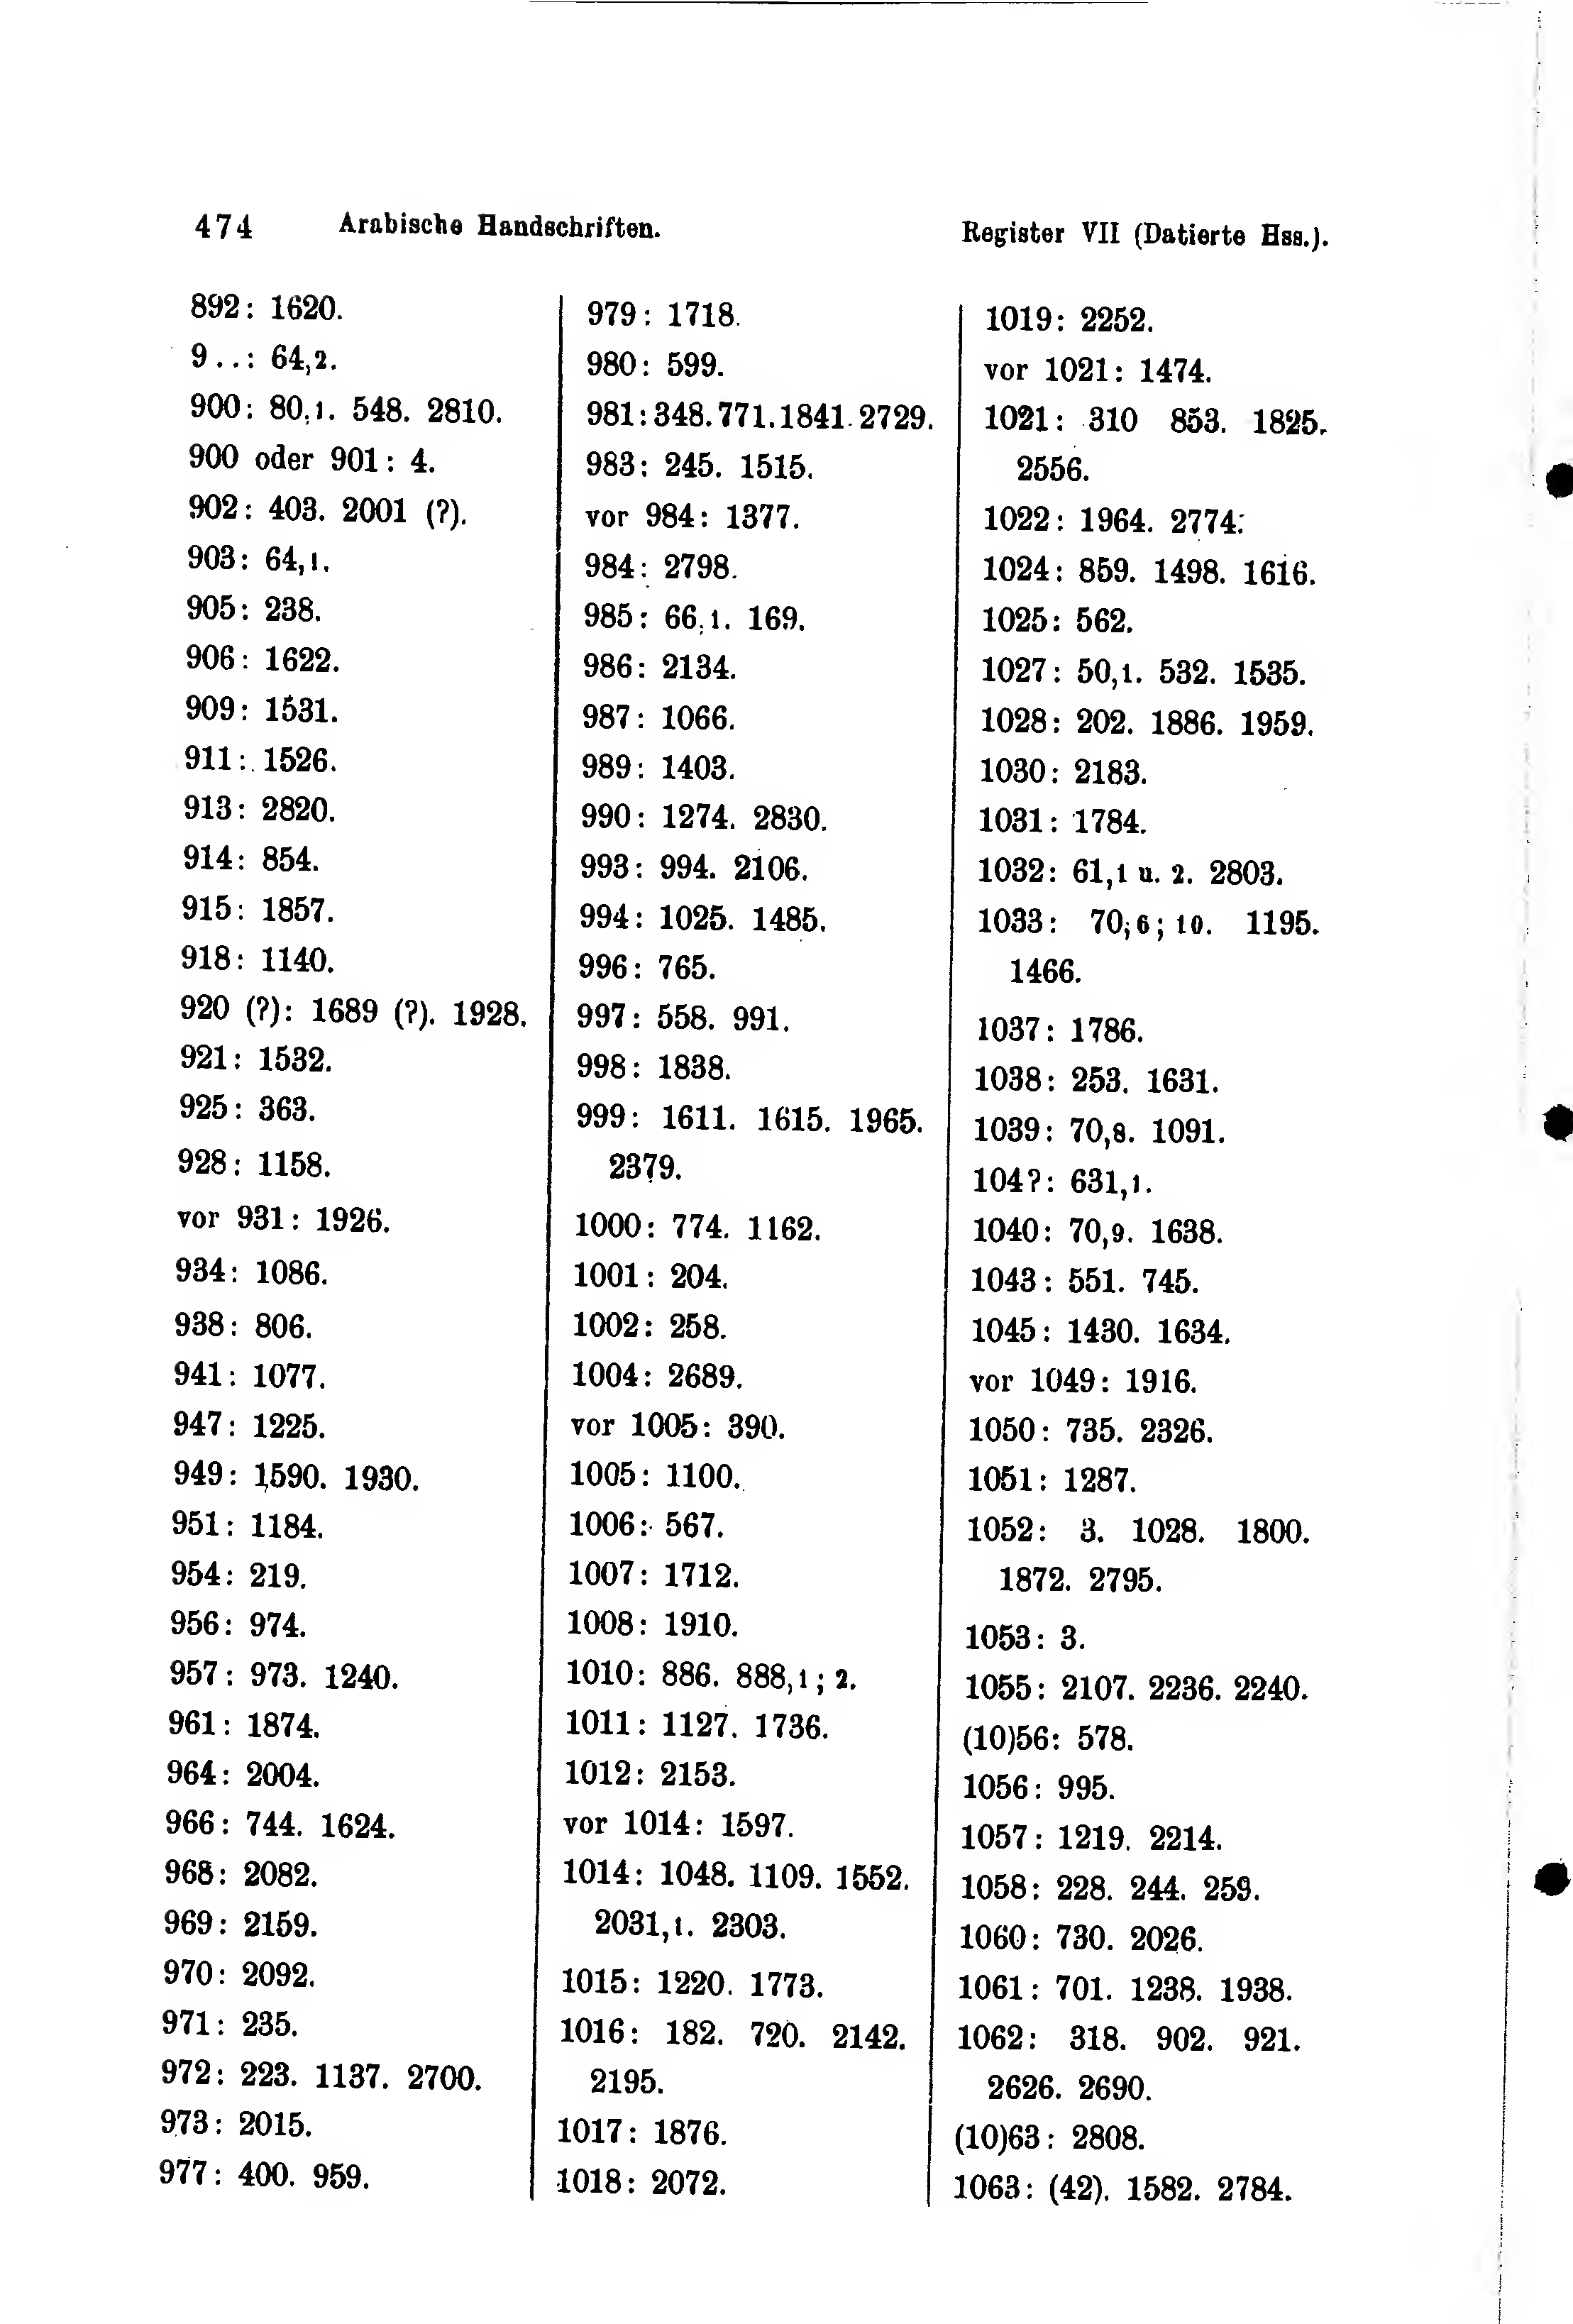 474 Arabische Handschriften. Register VII (Datierte Hss.).
892: 1620.
9..: 64,2.
900: 80,1. 548. 2810.
900 oder 901: 4.
902: 403. 2001 (?).
903: 64,1.
905: 238.
906: 1622.
909: 1531.
911: 1526.
913: 2820.
914: 854.
915: 1857.
918: 1140.
920 (?): 1689 (?). 1928.
921: 1532.
925: 363.
928: 1158.
vor 931: 1926.
934: 1086.
938: 806.
941: 1077.
947: 1225.
949: 1590. 1930.
951: 1184.
954: 219.
956: 974.
957: 973. 1240.
961: 1874.
964: 2004.
966: 744. 1624.
968: 2082.
969: 2159.
970: 2092.
971: 235.
972: 223. 1137. 2700.
973: 2015.
977: 400. 959.
979: 1718.
980: 599.
981: 348. 771. 1841. 2729.
983: 245. 1515.
vor 984: 1377.
984: 2798.
985: 66,1. 169.
986: 2134.
987: 1066.
989: 1403.
990: 1274. 2830.
993: 994. 2106.
994: 1025. 1485.
996: 765.
997: 558. 991.
998: 1838.
999: 1611. 1615. 1965.
2379.
1000: 774. 1162.
1001: 204.
1002: 258.
1004: 2689.
vor 1005: 390.
1005: 1100.
1006: 567.
1007: 1712.
1008: 1910.
1010: 886. 888,1; 2.
1011: 1127. 1736.
1012: 2153.
vor 1014: 1597.
1014: 1048. 1109. 1552.
2031,1. 2303.
1015: 1220. 1773.
1016: 182. 720. 2142.
2195.
1017: 1876.
1018: 2072.
1019: 2252.
vor 1021: 1474.
1021: 310 853. 1825.
2556.
1022: 1964. 2774.
1024: 859. 1498. 1616.
1025: 562.
1027: 50,1. 532. 1535.
1028: 202. 1886. 1959.
1030: 2183.
1031: 1784.
1032: 61,1 u. 2. 2803.
1033: 70,6; 10. 1195.
1466.
1037: 1786.
1038: 253. 1631.
1039: 70,8. 1091.
104?: 631,1.
1040: 70,9. 1638.
1043: 551. 745.
1045: 1430. 1634.
vor 1049: 1916.
1050: 735. 2326.
1051: 1287.
1052: 3. 1028. 1800.
1872. 2795.
1053: 3.
1055: 2107. 2236. 2240.
(10)56: 578.
1056: 995.
1057: 1219. 2214.
1058: 228. 244. 259.
1060: 730. 2026.
1061: 701. 1238. 1938.
1062: 318. 902. 921.
2626. 2690.
(10)63: 2808.
1063: (42). 1582. 2784.